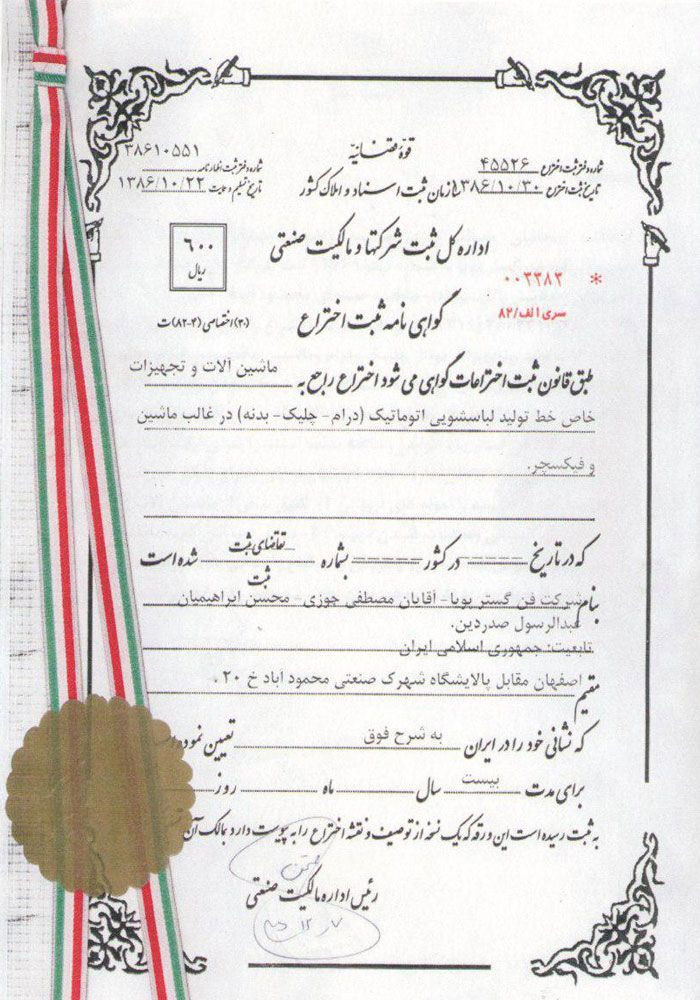 قوّه قضائیّه
شماره دفتر ثبت اختراع ۴۵۵۲۶
شماره دفتر ثبت اظهارنامه ۳۸۶۱۰۵۵۱
سازمان ثبت اسناد و املاک کشور
تاریخ ثبت اختراع ۱۳۸۶/۱۰/۳۰
تاریخ تسلیم و ساعت ۱۳۸۶/۱۰/۲۲
اداره کل ثبت شرکتها و مالکیت صنعتی
۶۰۰
ریال
* ۰۰۳۳۸۳
سری الف/۸۲
گواهی نامه ثبت اختراع
(۳۰) اختصاصی (۴-۸۲) ت
طبق قانون ثبت اختراعات گواهی می شود اختراع راجع به ماشین آلات و تجهیزات
خاص خط تولید لباسشویی اتوماتیک (درام- چلیک- بدنه) در غالب ماشین
و فیکسچر.
که در تاریخ ----- در کشور ====== بشماره تقاضای ثبت شده است
ثبت
بنام شرکت فن گستر پویا- آقایان مصطفی جوزی- محسن ابراهیمیان
عبدالرسول صدردین.
تابعیت: جمهوری اسلامی ایران
مقیم اصفهان مقابل پالایشگاه شهرک صنعتی محمود آباد خ ۲۰.
که نشانی خود را در ایران به شرح فوق تعیین نموده
برای مدت بیست سال ماه روز
به ثبت رسیده است این ورقه که یک نسخه از توصیف و نقشه اختراع را به پیوست دارد بمالک آن
رئیس اداره مالکیت صنعتی